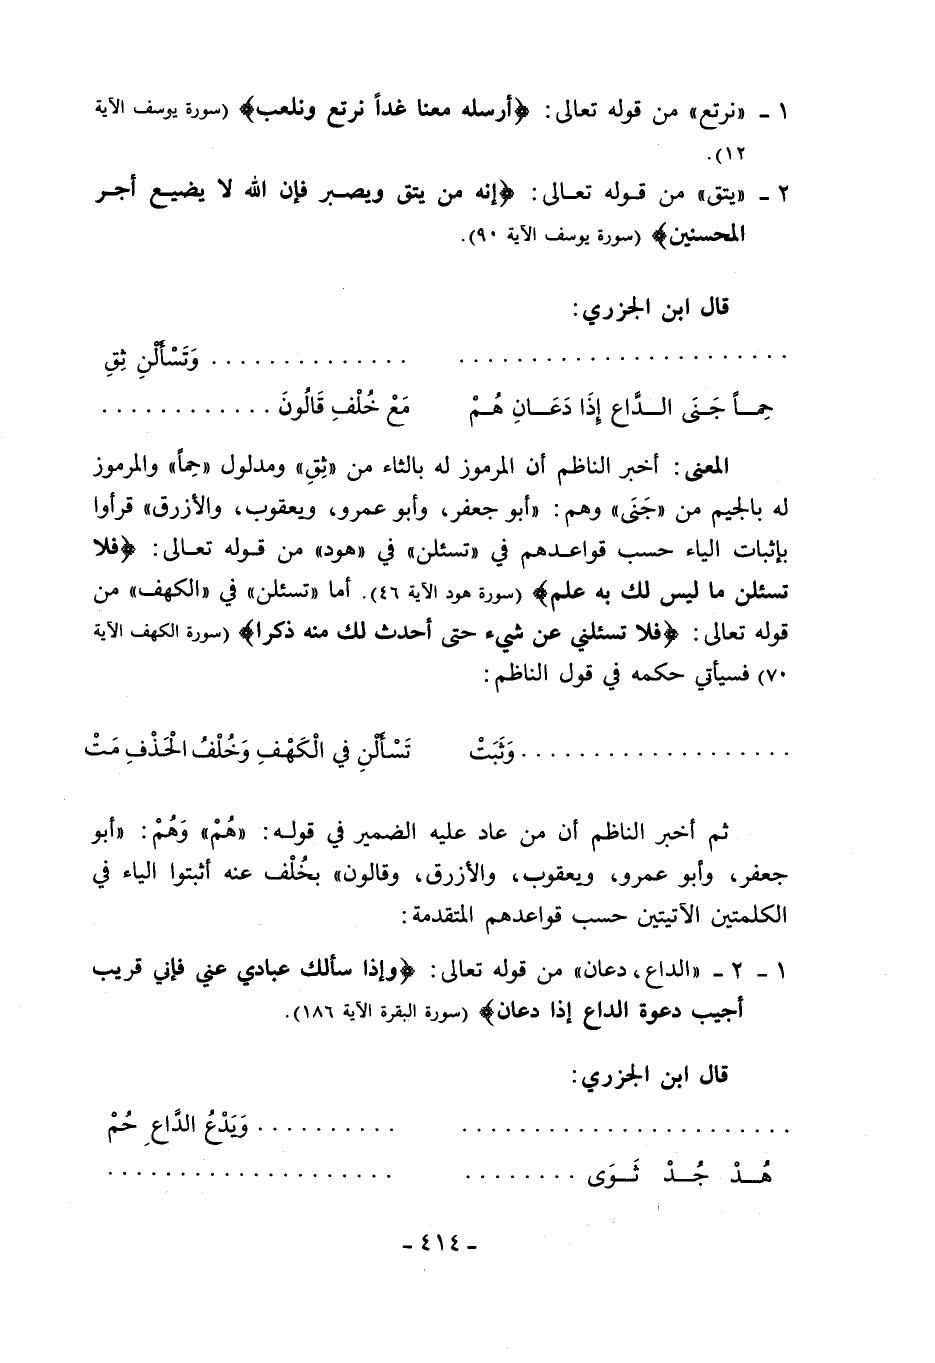 ١ - «نرتع» من قوله تعالى: ﴿أرسله معنا غداً نرتع ونلعب﴾ (سورة يوسف الآية
١٢).
٢ - «يتق» من قوله تعالى: ﴿إنه من يتق ويصبر فإن الله لا يضيع أجر
المحسنين﴾ (سورة يوسف الآية ٩٠).
قال ابن الجزري:
....................... .............. وَتَسْأَلْنِ ثِقِ
حِمـاً جَـنَى الـدَّاعِ إِذَا دَعَـانِ هُـمْ مَعْ خُلْفِ قَالُونَ ............
المعنى: أخبر الناظم أن المرموز له بالثاء من «ثِقِ» ومدلول «حِماً» والمرموز
له بالجيم من «جَنَى» وهم: «أبو جعفر، وأبو عمرو، ويعقوب، والأزرق» قرأوا
بإثبات الياء حسب قواعدهم في «تسئلن» في «هود» من قوله تعالى: ﴿فلا
تسئلن ما ليس لك به علم﴾ (سورة هود الآية ٤٦). أما «تسئلن» في «الكهف» من
قوله تعالى: ﴿فلا تسئلني عن شيء حتى أحدث لك منه ذكرا﴾ (سورة الكهف الآية
٧٠) فسيأتي حكمه في قول الناظم:
................... وَثَبَتْ تَسْأَلْنِ فِي الْكَهْفِ وَخُلْفُ الْحَذْفِ مَتْ
ثم أخبر الناظم أن من عاد عليه الضمير في قوله: «هُمْ» وَهُمْ: «أبو
جعفر، وأبو عمرو، ويعقوب، والأزرق، وقالون» بخُلْف عنه أثبتوا الياء في
الكلمتين الآتيتين حسب قواعدهم المتقدمة:
١ - ٢ - «الداع، دعان» من قوله تعالى: ﴿وإذا سألك عبادي عني فإني قريب
أجيب دعوة الداع إذا دعان﴾ (سورة البقرة الآية ١٨٦).
قال ابن الجزري:
....................... .......... وَيَدْعُ الدَّاعِ حُمْ
هُـدْ جُـدْ ثَـوَى ........ ....................
- ٤١٤ -